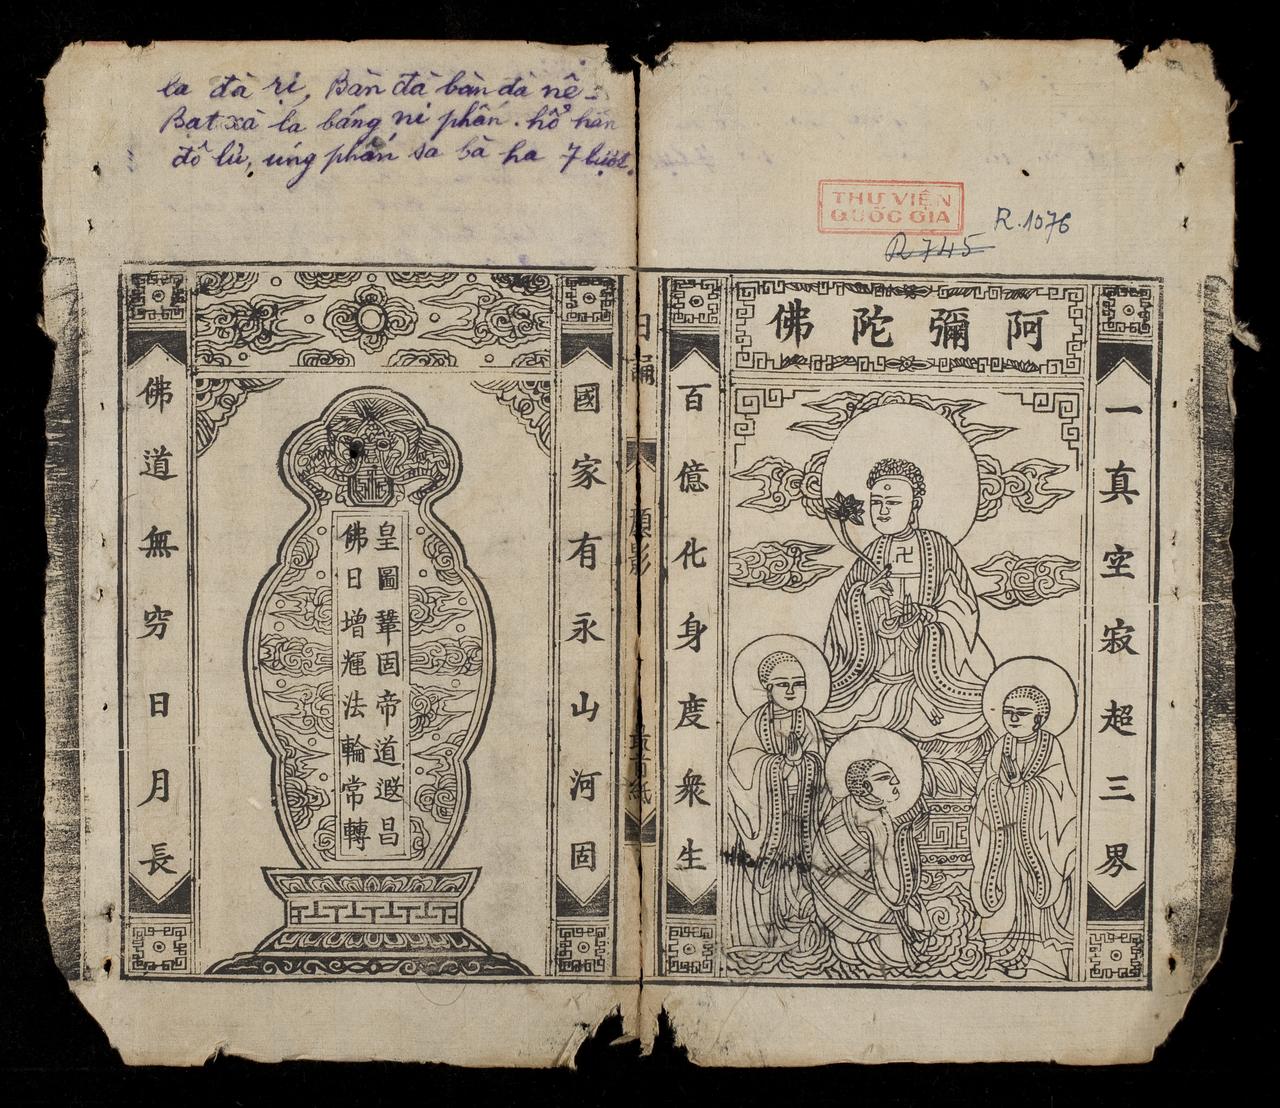 la đà rị, Bàn đà bàn đà nê_
Bạt xà la báng ni phấn. hổ hàn
đô lử, úng phấn sa bà ha 7 lượt.
THƯ VIỆN
QUỐC GIA
R.1076
R745
阿彌陀佛
一真空寂超三界
百億化身度衆生
顔影
國家有永山河固
皇圖鞏固帝道遐昌
佛日增輝法輪常轉
佛道無穷日月長